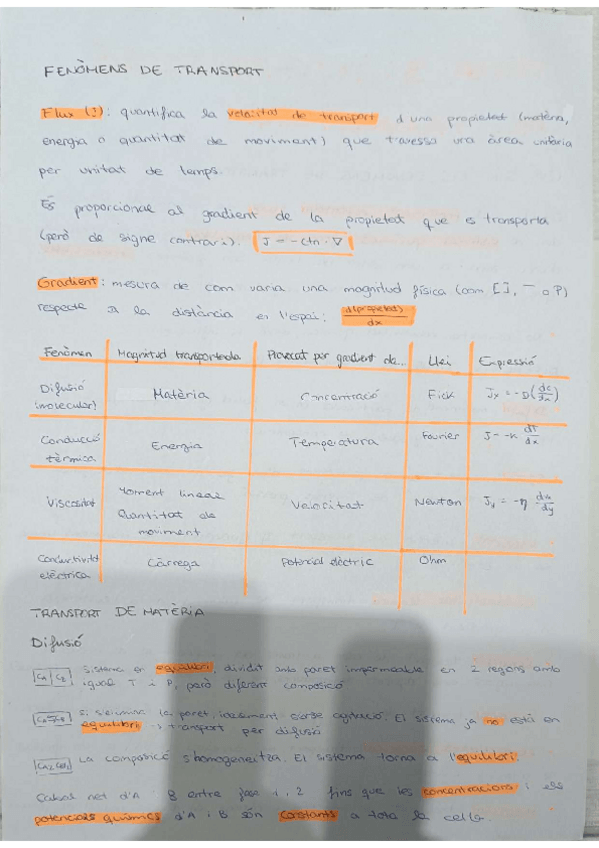 FENÒMENS DE TRANSPORT
Flux (J): quantifica la velocitat de transport d'una propietat (matèria,
energia o quantitat de moviment) que travessa una àrea unitària
per unitat de temps.
És proporcional al gradient de la propietat que es transporta
(però de signe contrari). J = -ctn · ∇
Gradient: mesura de com varia una magnitud física (com [], T o P)
respecte a la distància en l'espai: d(propietat)/dx
Fenòmen | Magnitud transportada | Provocat per gradient de... | Llei | Expressió
Difusió (molecular) | Matèria | Concentració | Fick | Jx = -D(dc/dx)
Conducció tèrmica | Energia | Temperatura | Fourier | J = -k dT/dx
Viscositat | Moment lineal Quantitat de moviment | Velocitat | Newton | Jy = -η du/dy
Conductivitat elèctrica | Càrrega | Potencial elèctric | Ohm
TRANSPORT DE MATÈRIA
Difusió
C₁ | C₂ Sistema en equilibri, dividit amb paret impermeable en 2 regions amb
igual T i P, però diferent composició
Si s'elimina la paret, idealment sense agitació. El sistema ja no està en
equilibri → transport per difusió
La composició s'homogeneitza. El sistema torna a l'equilibri.
Cabal net d'A i B entre fase 1 i 2 fins que les concentracions i els
potencials químics d'A i B són constants a tota la cel·la.